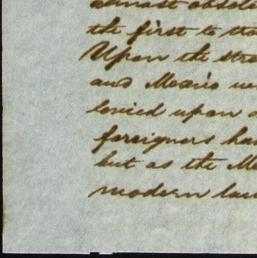 almost absole
the first to sto
Upon the stre
and Mexico we
levied upon a
foreigners ha
but as the Me
modern law